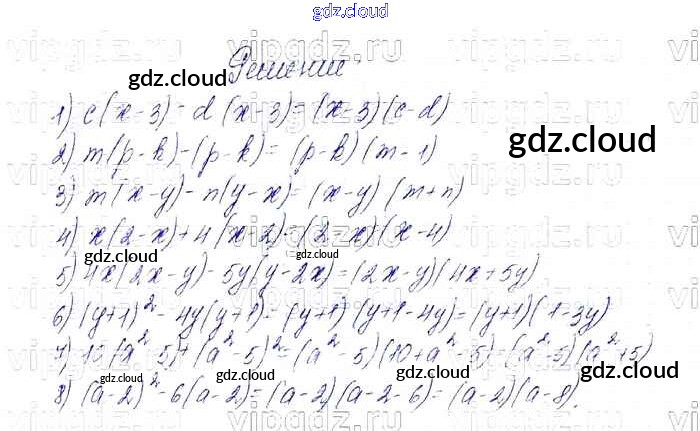 gdz.cloud
Решение
gdz.cloud
1) c(x-3)-d(x-3)=(x-3)(c-d)
gdz.cloud
2) m(p-k)-(p-k)=(p-k)(m-1)
3) m(x-y)-n(y-x)=(x-y)(m+n)
4) x(2-x)+4(x-2)=(2-x)(x-4)
gdz.cloud
gdz.cloud
5) 4x(2x-y)-5y(y-2x)=(2x-y)(4x+5y)
6) (y+1)²-4y(y+1)=(y+1)(y+1-4y)=(y+1)(1-3y)
7) 10(a²-5)+(a²-5)²=(a²-5)(10+a²-5)=(a²-5)(a²+5)
gdz.cloud
gdz.cloud
gdz.cloud
8) (a-2)²-6(a-2)=(a-2)(a-2-6)=(a-2)(a-8).